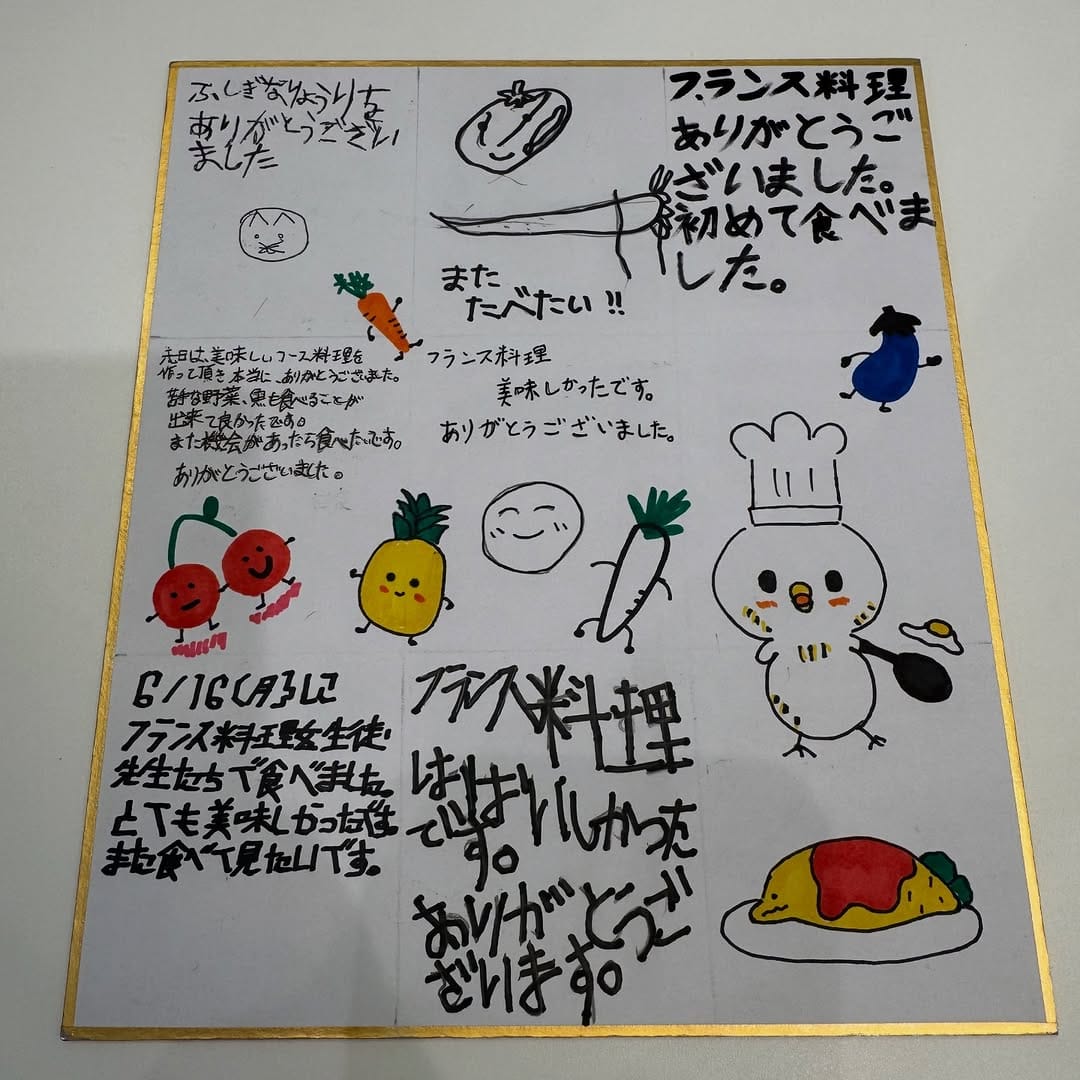 ふしぎなりょうりを
ありがとうござい
ました
また
たべたい!!
フランス料理
ありがとうご
ざいました。
初めて食べま
した。
先日は、美味しいコース料理を
作って頂き本当に、ありがとうございました。
苦手な野菜、魚も食べることが
出来て良かったです。
また機会があったら食べたいです。
ありがとうございました。
フランス料理
美味しかったです。
ありがとうございました。
6/16(月)に
フランス料理を生徒・
先生たちで食べました。
とても美味しかったです
また食べて見たいです。
フランス料理
です。
ありがとうご
ざいます。